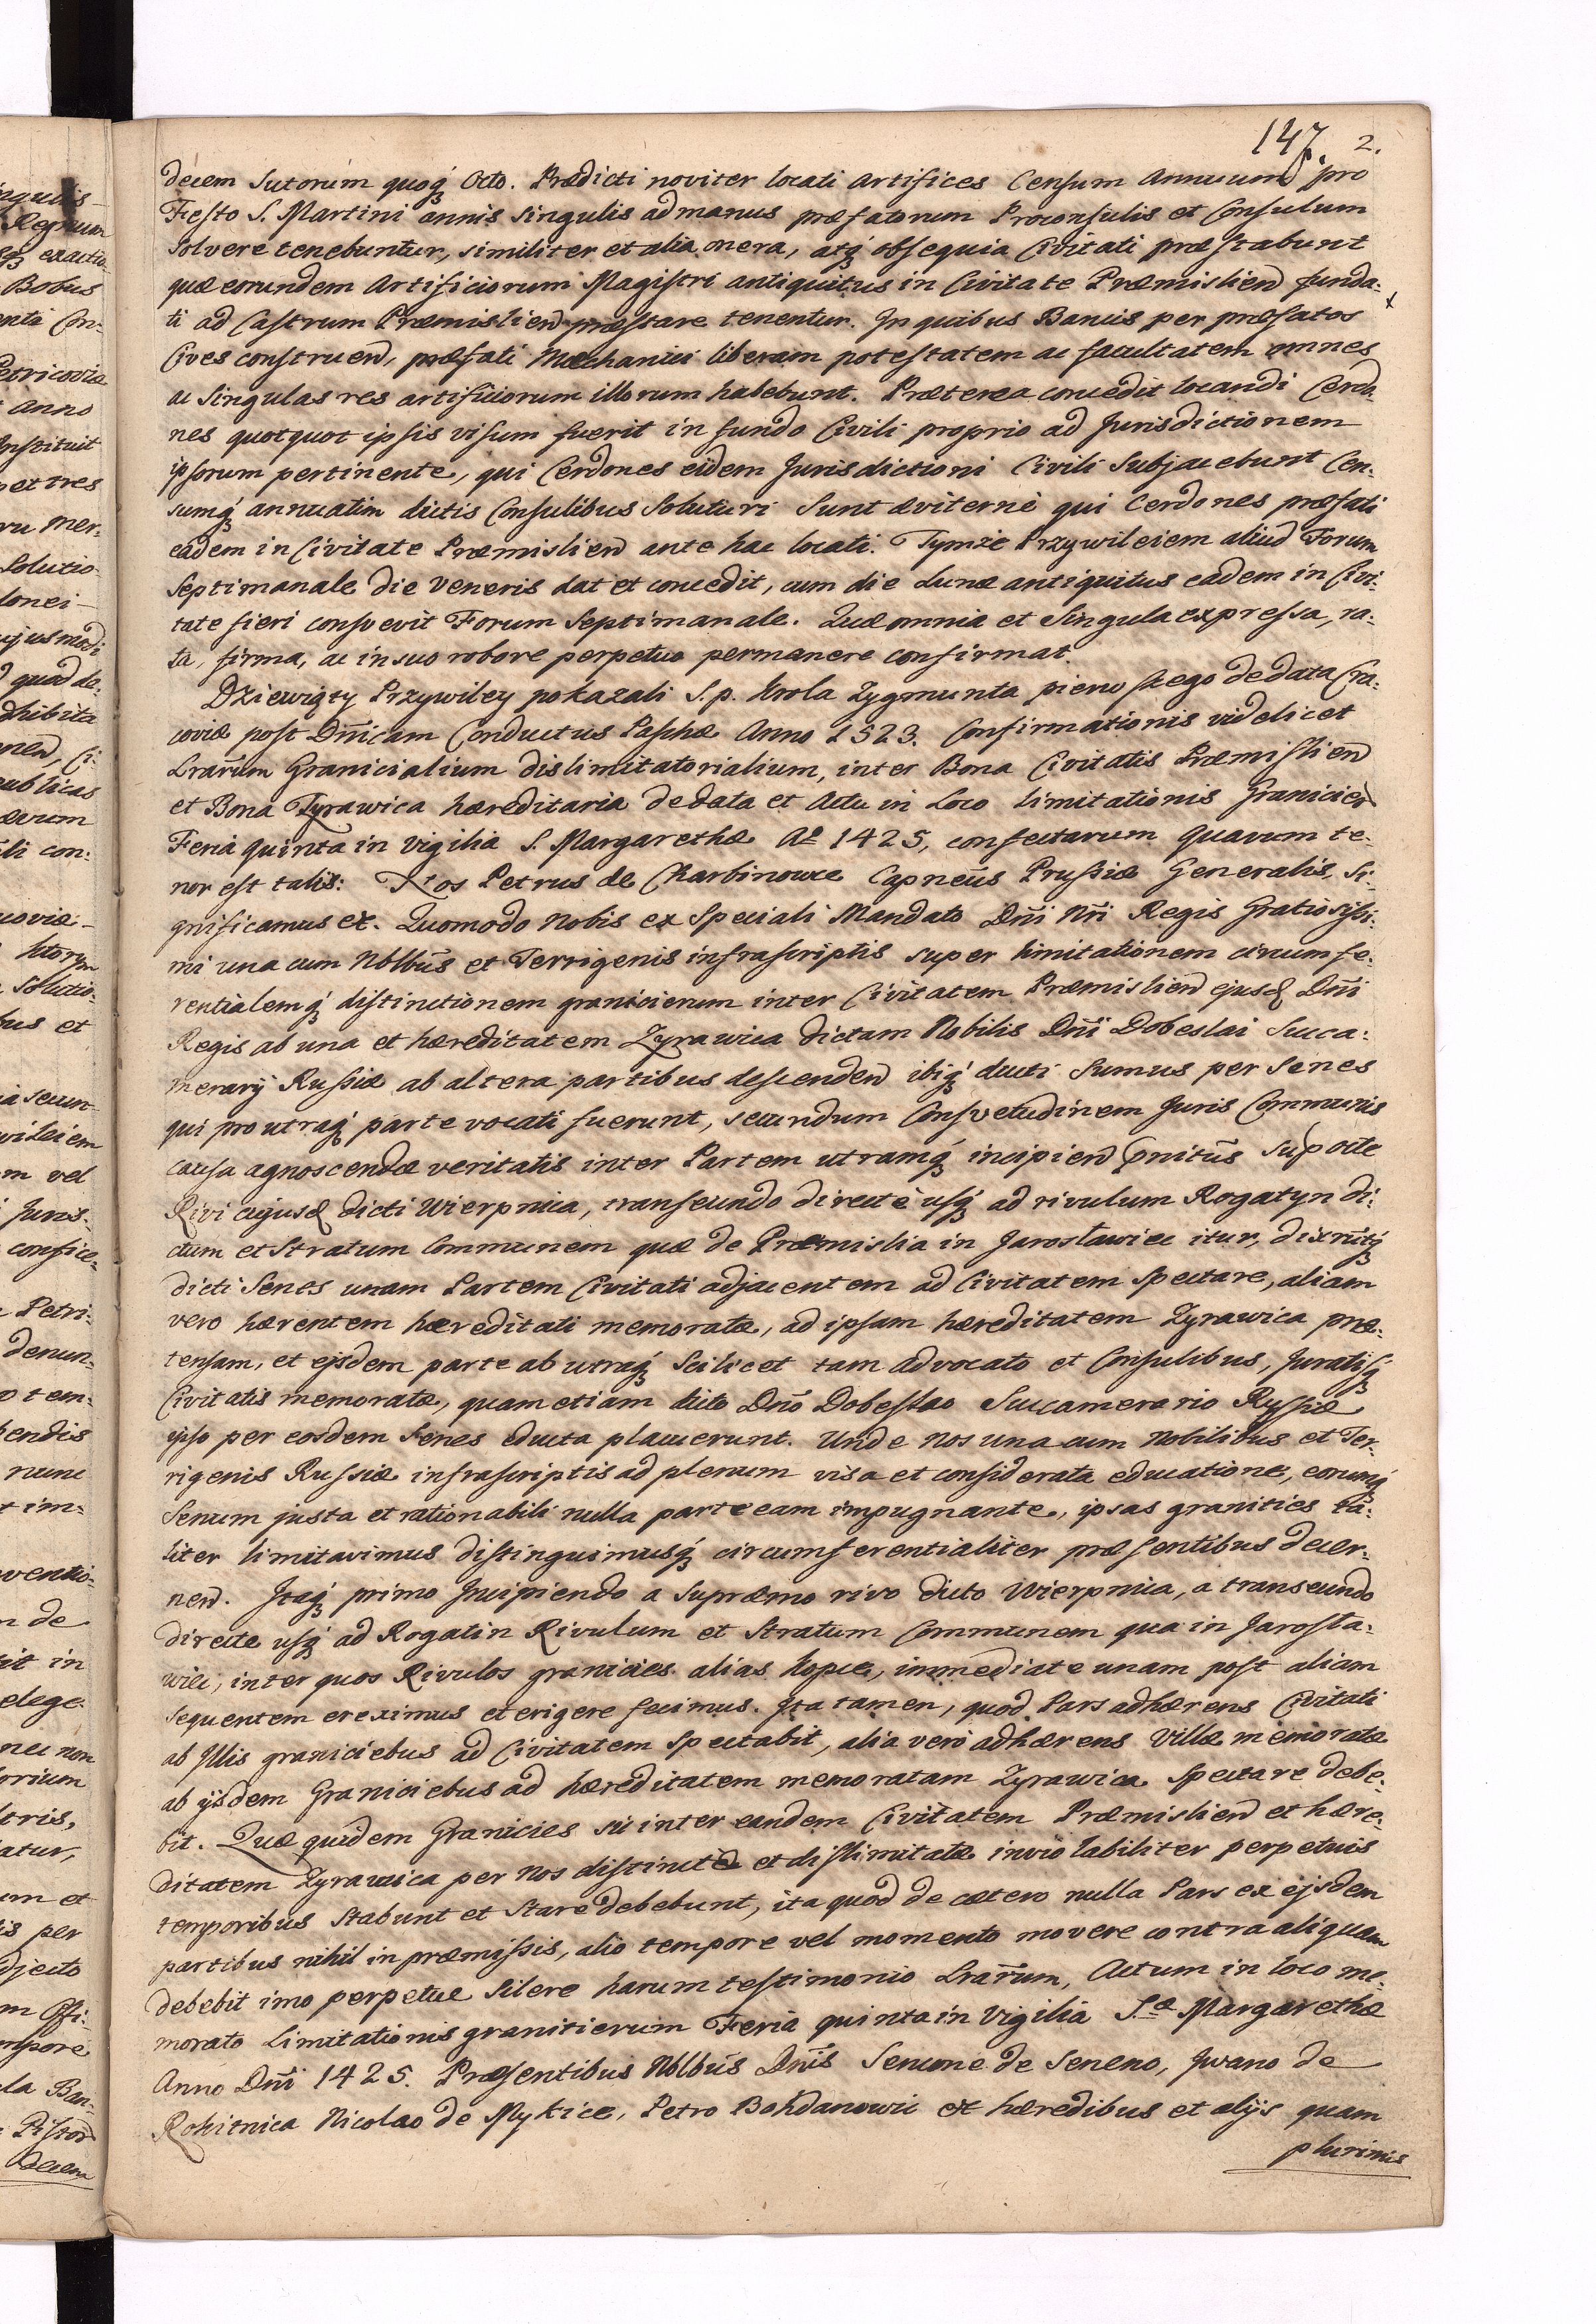 147. 2.
decem Sutorum quoqȝ Octo. Prædicti noviter locati Artifices Censum Annuum pro
Festo S. Martini annis singulis ad manus præfatorum Proconsulis et Consulum
Solvere tenebuntur, similiter et alia onera, atqȝ obsequia Civitati præstabunt
quæ eorundem Artificiorum Magistri antiquitus in Civitate Præmislien̄ funda-
ti ad Castrum Præmislien̄ præstare tenentur. In quibus Bancis per præfatos
Cives construen̄, præfati Mæchanici liberam potestatem ac facultatem omnes
ac Singulas res artificiorum illorum habebunt. Præterea concedit locandi Cerdo-
nes quotquot ipsis visum fuerit in fundo Civili proprio ad Jurisdictionem
ipsorum pertinente, qui Cerdones eidem Jurisdictioni Civili Subjacebunt Cen-
sumqȝ annuatim dictis Consulibus Soluturi Sunt æviterne qui Cerdones præfati
eadem in Civitate Præmislien̄ ante hac locati. Tymże Przywileiem aliud Forum
Septimanale die Veneris dat et concedit, cum die Lunæ antiquitus eadem in Civi-
tate fieri consvevit Forum Septimanale. Quæ omnia et Singula expressa, ra-
ta, firma, ac in suo robore perpetuo permanere confirmat.
Dziewiąty Przywiley pokazali S.p. Krola Zygmunta pierwszego de data Cra-
coviæ post Dn̄icam Conductus Paschæ Anno 1523. Confirmationis videlicet
Lrar̄um Granicialium dislimitatorialium, inter Bona Civitatis Præmislien̄
et Bona Zyrawica hæreditaria de data et Actu in Loco limitationis Granicier̄
Feria quinta in vigilia S. Margarethæ Aº 1425, confectarum quarum te-
nor est talis: Nos Petrus de Charbinowce Capneūs Prussiæ Generalis, Si-
gnificamus ex. Quomodo Nobis ex Speciali Mandato Dn̄i Nr̄i Regis Gratiosissi-
mi una cum Nblbūs et Terrigenis infrascriptis super limitationem circumfe-
rentialemqȝ distinctionem granicierum inter Civitatem Præmislien̄ ejusd Dn̄i
Regis ab una et hæreditatem Zyrawica dictam Nobilis Dn̄i Dobeslai Succa-
merarÿ Russiæ ab altera partibus descenden̄ ibiqȝ ducti Sumus per Senes
qui pro utraqȝ parte vocati fuerunt, secundum Consvetudinem Juris Communis
causa agnoscendæ veritatis inter Partem utramqȝ incipien̄ pnitūs Sup
Rivi cujusd dicti Wierpnica, transeundo directe usqȝ ad rivulum Rogatyn di-
ctum et Stratum Communem quæ de Præmislia in Jarosławice itur, dixrutqȝ
dicti Senes unam Partem Civitati adjacentem ad Civitatem Spectare, aliam
vero hærentem hæreditati memoratæ, ad ipsam hæreditatem Zyrawica præ-
tensam, et ejsdem parte ab utraqȝ Scilicet tam Advocato et Consulibus, Juratisqȝ
Civitatis memoratæ, quam etiam dicto Dn̄o Dobeslao Succamerario Russiæ
ipso per eosdem Senes educta placuerunt. Unde Nos una cum Nobilibus et Ter-
rigenis Russiæ infrascriptis ad plenum visa et considerata educatione, eorumqȝ
Senum justa et rationabili nulla parte eam impugnante, ipsas granities ta-
liter limitavimus distinguimusqȝ circumferentialiter præsentibus decer-
nen̄. Itaqȝ primo Incipiendo a Supræmo rivo dicto Wierpnica, a transeundo
directe usqȝ ad Rogatin Rivulum et Stratum Communem qua in Jarosła-
wice, inter quos Rivulos granicies alias kopce, immediate unam post aliam
sequentem ereximus et erigere fecimus. Ita tamen, quod Pars adhærens Civitati
ab Illis graniciebus ad Civitatem Spectabit, alia vero adhærens Villæ memoratæ
ab ÿsdem Graniciebus ad hæreditatem memoratam Zyrawica Spectare debe-
bit. Quæ quidem Granicies sic inter eandem Civitatem Præmislien̄ et hære-
ditatem Zyrawica per Nos distinctæ et dislimitatæ inviolabiliter perpetuis
temporibus Stabunt et Stare debebunt, ita quod de cætero nulla Pars ex ejsdem
partibus nihil in præmissis, alio tempore vel momento movere contra aliquam
debebit imo perpetue Silere harum testimonio Lrar̄um, Actum in loco me-
morato Limitationis granitierum Feria quinta in Vigilia S.æ Margarethæ
Anno Dn̄i 1425. Præsentibus Nblbūs Dn̄is Senione de Seneno, Iwano de
Rokitnica Nicolao de Mykice, Petro Bohdanowic et hæredibus et alÿs quam
plurimis